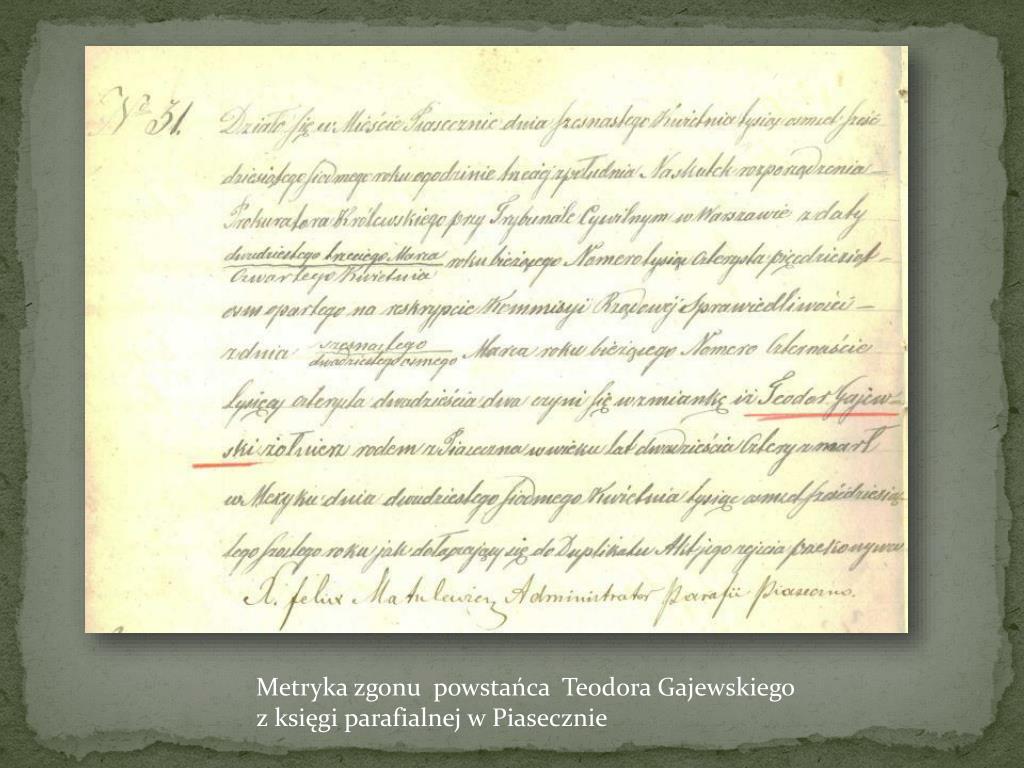 Nr 31.
Działo się w Mieście Piasecznie dnia szesnastego Kwietnia tysiąc osmset sześć
dziesiątego siódmego roku o godzinie trzeciej z południa Na skutek rozporządzenia
Prokuratora Królewskiego przy Trybunale Cywilnym w Warszawie z daty
dwudziestego trzeciego Marca
Czwartego Kwietnia
roku bieżącego Numero tysiąc czterysta pięćdziesiąt
osm opartego na reskrypcie Kommisyi Rządowéj Sprawiedliwości
z dnia szesnastego
dwudziestego osmego
Marca roku bieżącego Numero Czternaście
tysięcy czterysta dwadzieścia dwa czyni się wzmiankę iż Teodor Gajew-
ski żołnierz rodem z Piaseczna w wieku lat dwadzieścia Cztery zmarł
w Mexyku dnia dwudziestego siódmego Kwietnia tysiąc osmset sześćdziesią
tego szóstego roku jak dołączający się do Duplikatu Akt jego zejścia przekonywa
X. felix Matulewicz Administrator Parafii Piaseczno.
Metryka zgonu powstańca Teodora Gajewskiego
z księgi parafialnej w Piasecznie